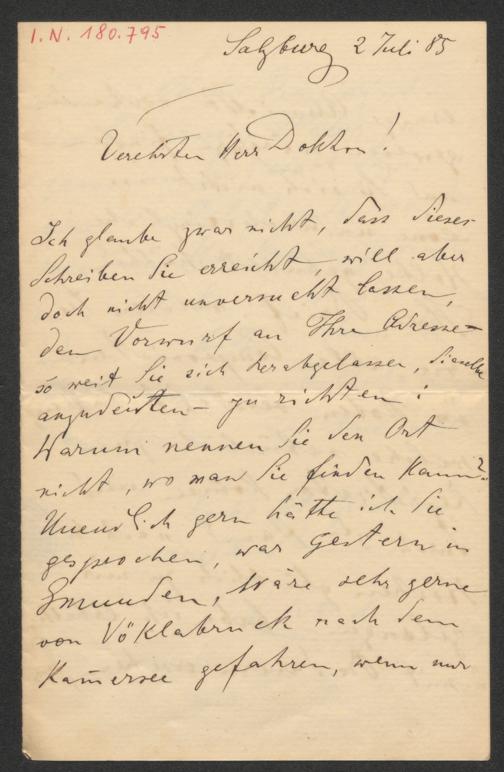 I.N. 180.795
Salzburg 2 Juli 85
Verehrter Herr Doktor!
Ich glaube zwar nicht, dass dieses
Schreiben Sie erreicht, will aber
doch nicht unversucht lassen,
den Vorwurf an Ihre Adresse –
so weit Sie sich herabgelassen, dieselbe
anzudeuten – zu richten:
Warum nennen Sie den Ort
nicht, wo man Sie finden kann?
Unendlich gern hätte ich Sie
gesprochen, war gestern in
Gmunden, wäre sehr gerne
von Vöklabruck nach dem
Kam̄ersee gefahren, wenn nur